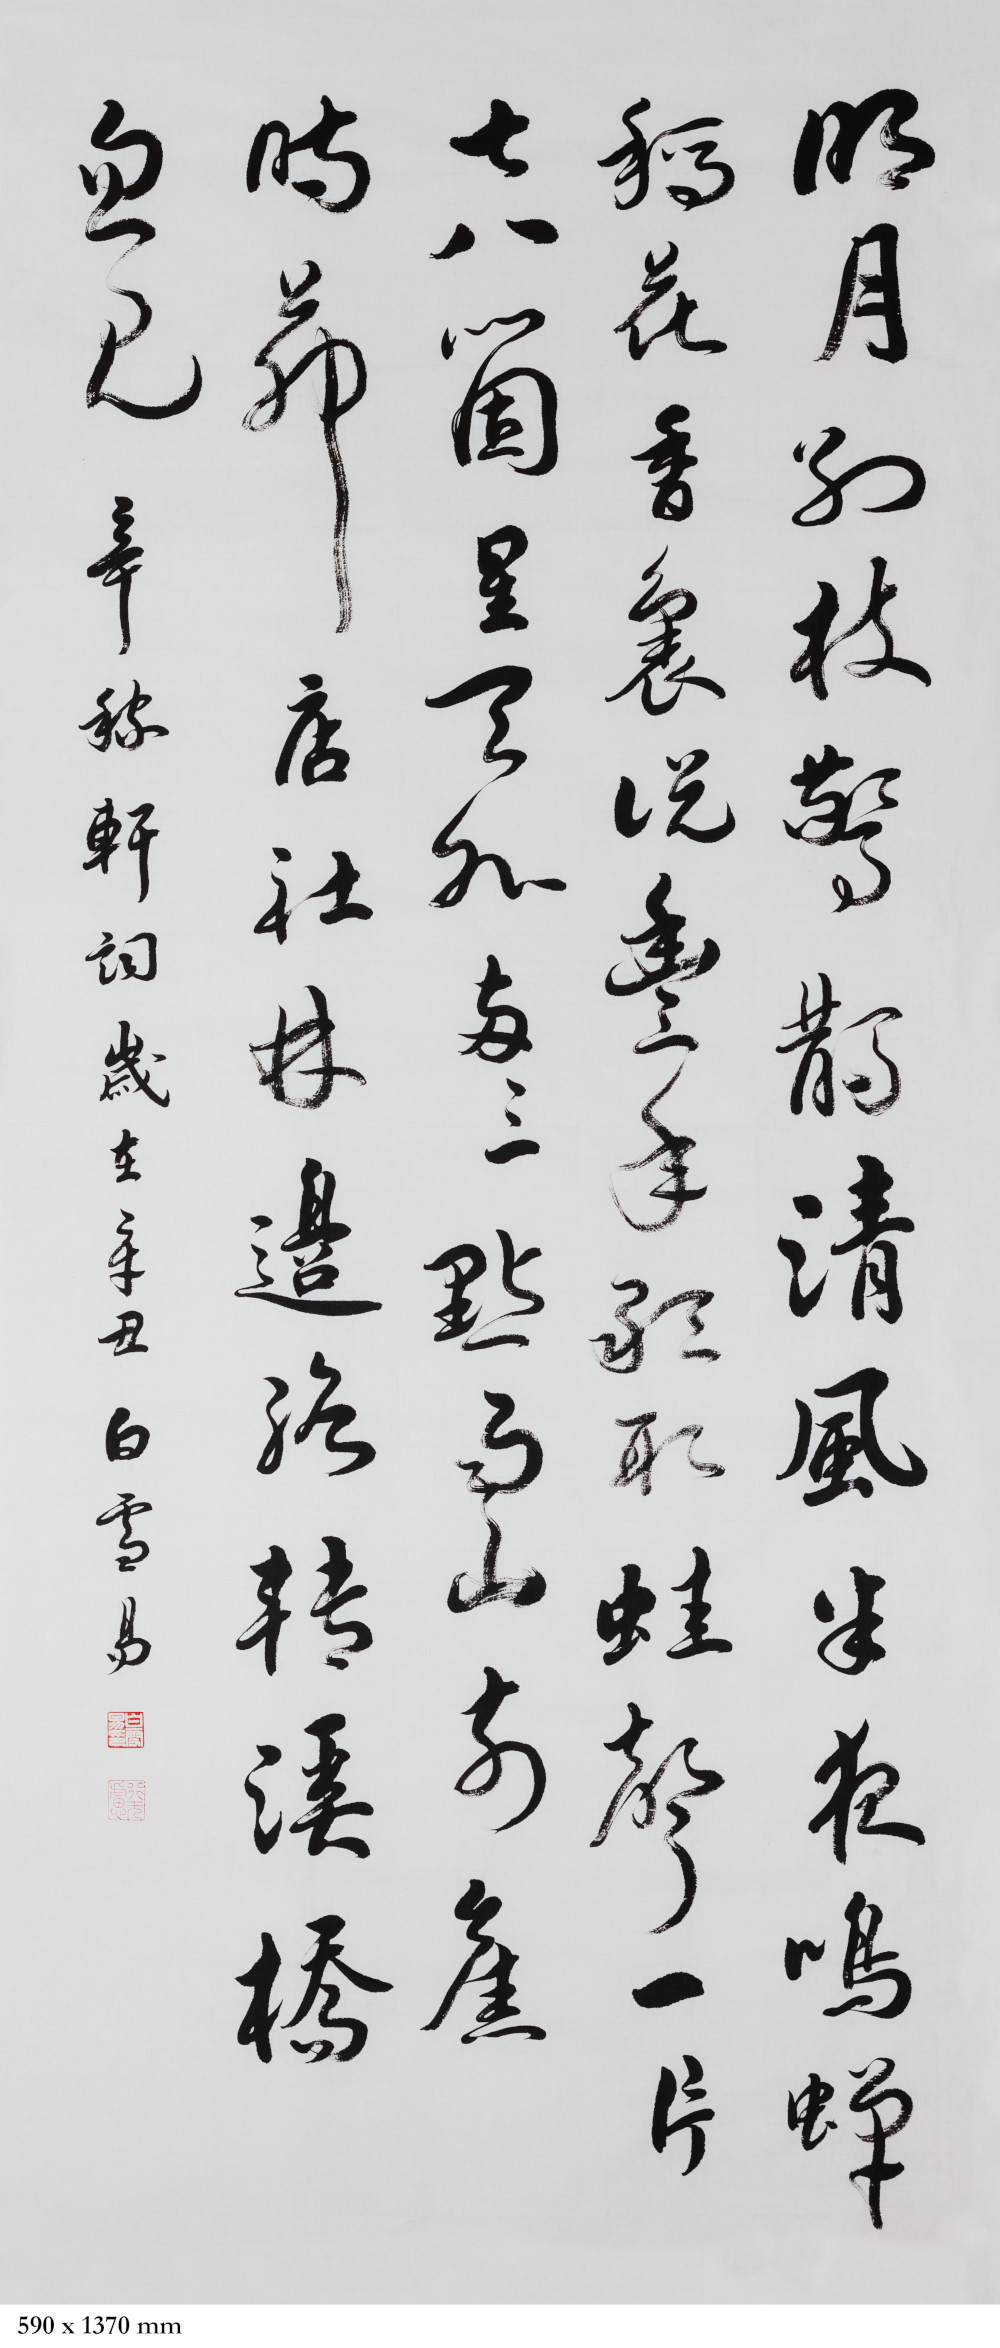 明月別枝驚鵲清風半夜鳴蟬
稻花香裏說豐年聽取蛙聲一片
七八箇星天外兩三點雨山前舊
時茆店社林邊路轉溪橋
忽見 辛稼軒詞歲在辛丑白雪易
590 x 1370 mm